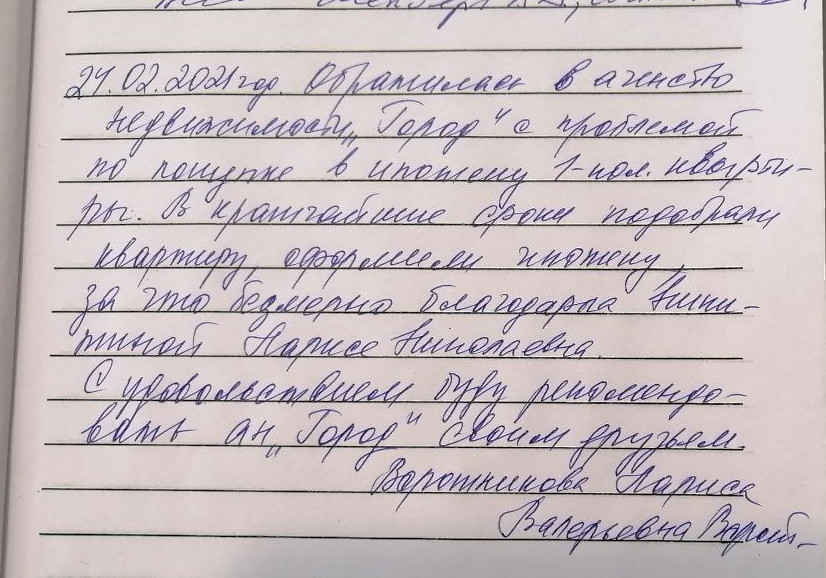 24.02.2021 год. Обратилась в агенство
недвижимости „Город" с проблемой
по покупке в ипотеку 1-ком. кварти-
ры. В кратчайшие сроки подобрали
квартиру, оформили ипотеку,
за что безмерно благодарна Ники-
тиной Ларисе Николаевна.
С удовольствием буду рекомендо-
вать ан „Город" своим друзьям.
Воротникова Лариса
Валерьевна